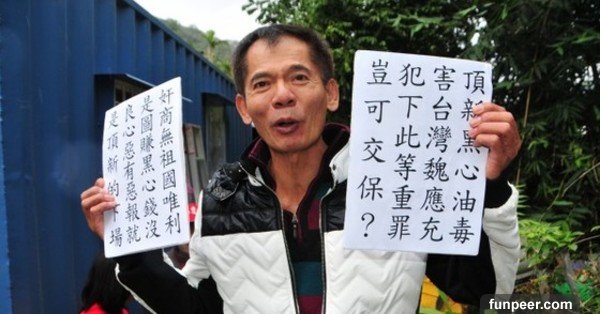 頂新黑心油毒
害台灣魏應充
犯下此等重罪
豈可交保？
奸商無祖國唯利
是圖賺黑心錢沒
良心惡有惡報就
是頂新的下場
funpeer.com